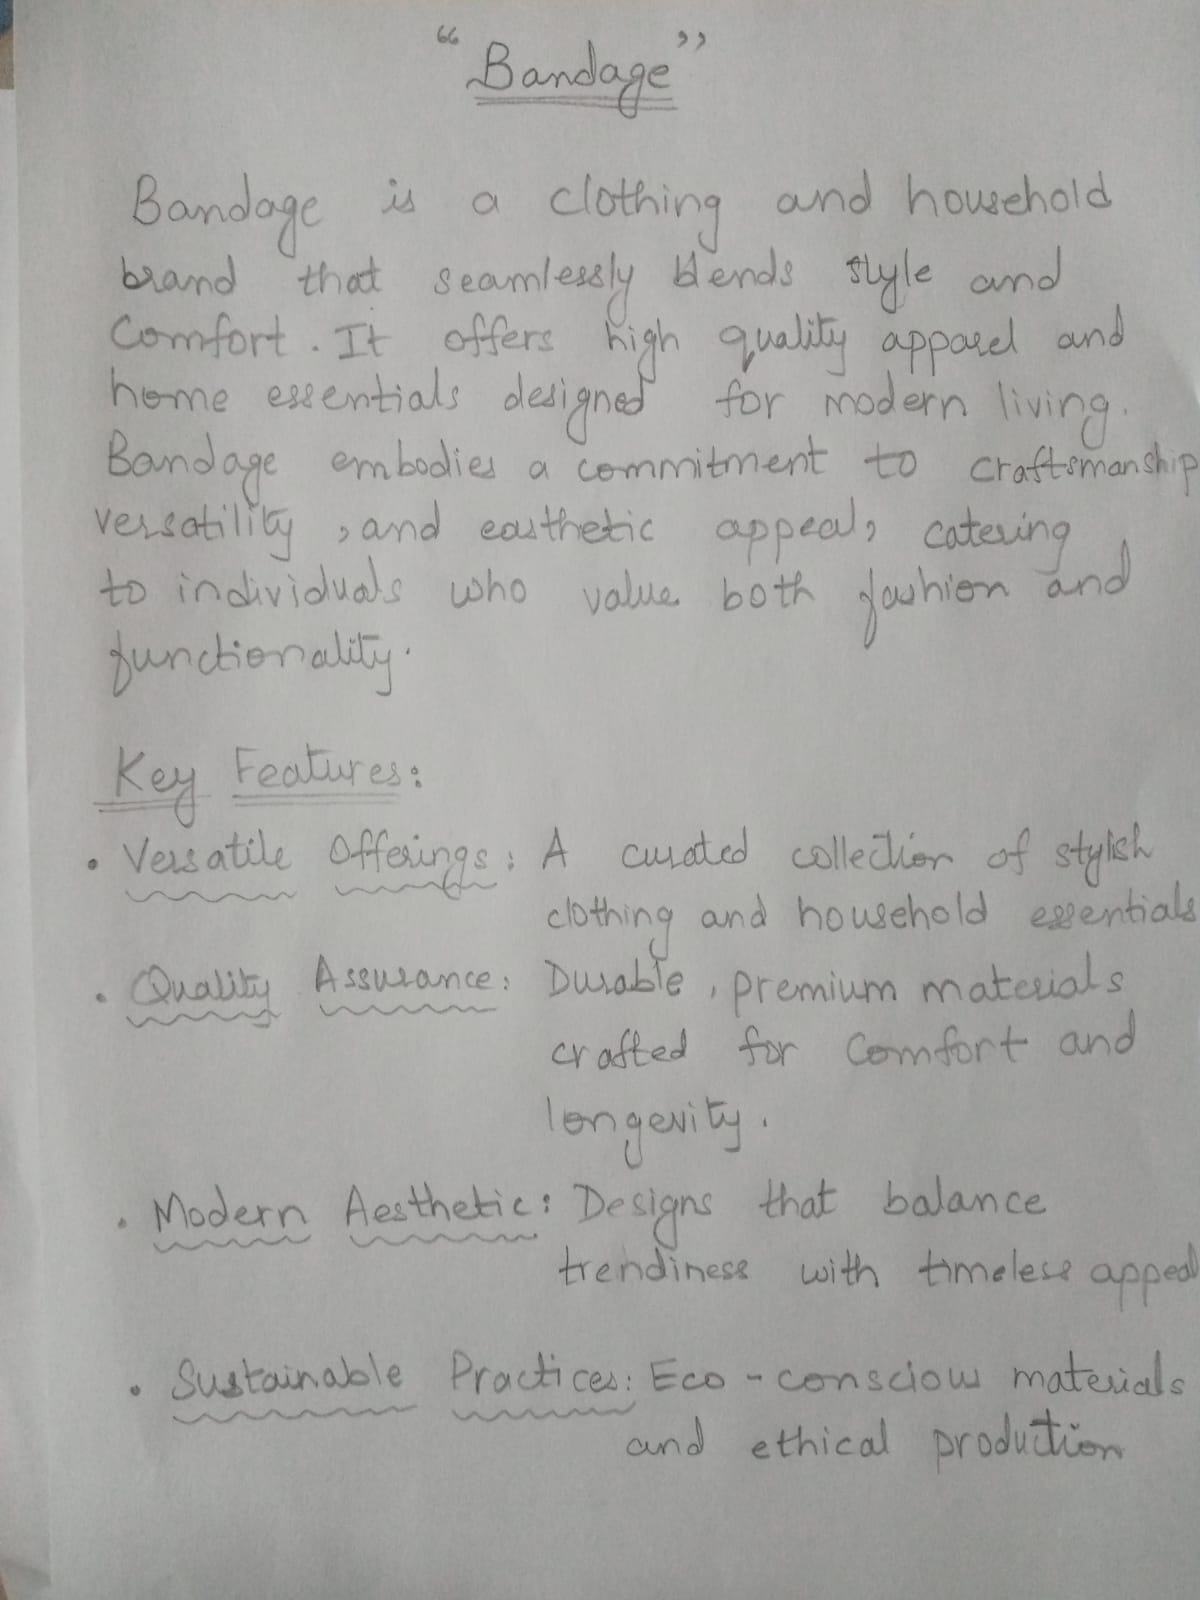 "Bandage"
Bandage is a clothing and household
brand that seamlessly blends style and
Comfort. It offers high quality apparel and
home essentials designed for modern living.
Bandage embodies a commitment to craftsmanship
versatility, and easthetic appeal, catering
to individuals who value both fashion and
functionality.
Key Features:
• Versatile Offerings: A curated collection of stylish
clothing and household essentials
• Quality Assurance: Durable, premium materials
crafted for Comfort and
longevity.
• Modern Aesthetic: Designs that balance
trendiness with timeless appeal
• Sustainable Practices: Eco-conscious materials
and ethical production